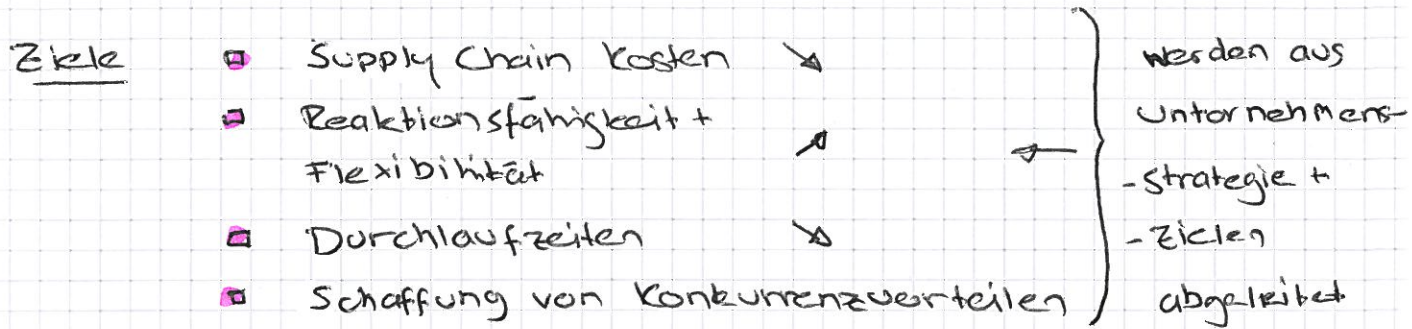 Ziele
Supply Chain Kosten ↘
Reaktionsfähigkeit +
Flexibilität ↗
Durchlaufzeiten ↘
Schaffung von Konkurrenzvorteilen
werden aus
Unternehmens-
-strategie +
-Zielen
abgeleitet